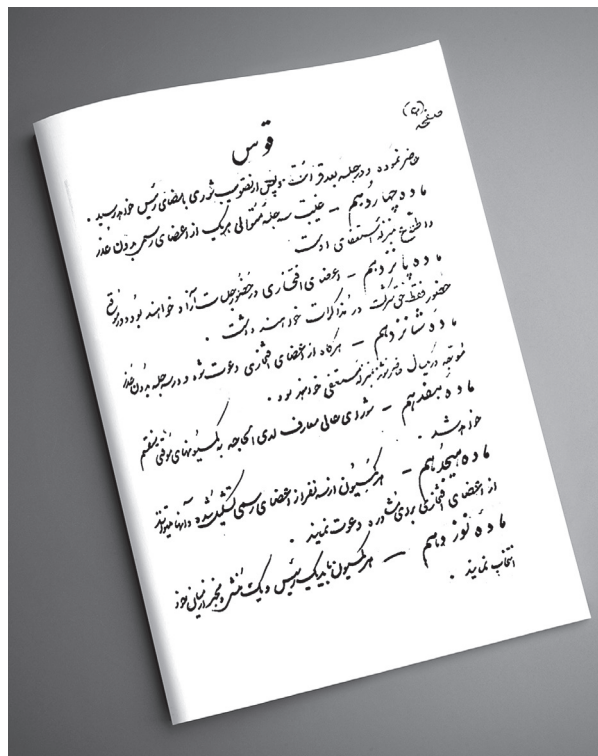 صفحه (۲)
قوس
حاضر نموده و در جلسه بعد قرائت و پس از تصویب شوری بامضای رئیس خواهد رسید .
ماده چهاردهم — غیبت سه جلسه متوالی هر یک از اعضای رسمی بدون عذر
و اطلاع بمنزله استعفای اوست
ماده پانزدهم — اعضای افتخاری در حضور جلسات آزاد خواهند بود و در موقع
حضور فقط حق شرکت در مذاکرات خواهند داشت .
ماده شانزدهم — هرگاه از اعضای افتخاری دعوت شود و در سه جلسه بدون عذر
موجه در سال حاضر نشوند بمنزله مستعفی خواهند بود .
ماده هفدهم — شورای عالی معارف لدی الحاجه به کمیسیونهای موقتی منقسم
خواهد شد .
ماده هیجدهم — هر کمیسیون از سه نفر از اعضای رسمی تشکیل شده و آنها میتوانند
از اعضای افتخاری برای مشاوره دعوت نمایند .
ماده نوزدهم — هر کمیسیون باید یک رئیس و یک منشی و مخبر از میان خود
انتخاب نماید .